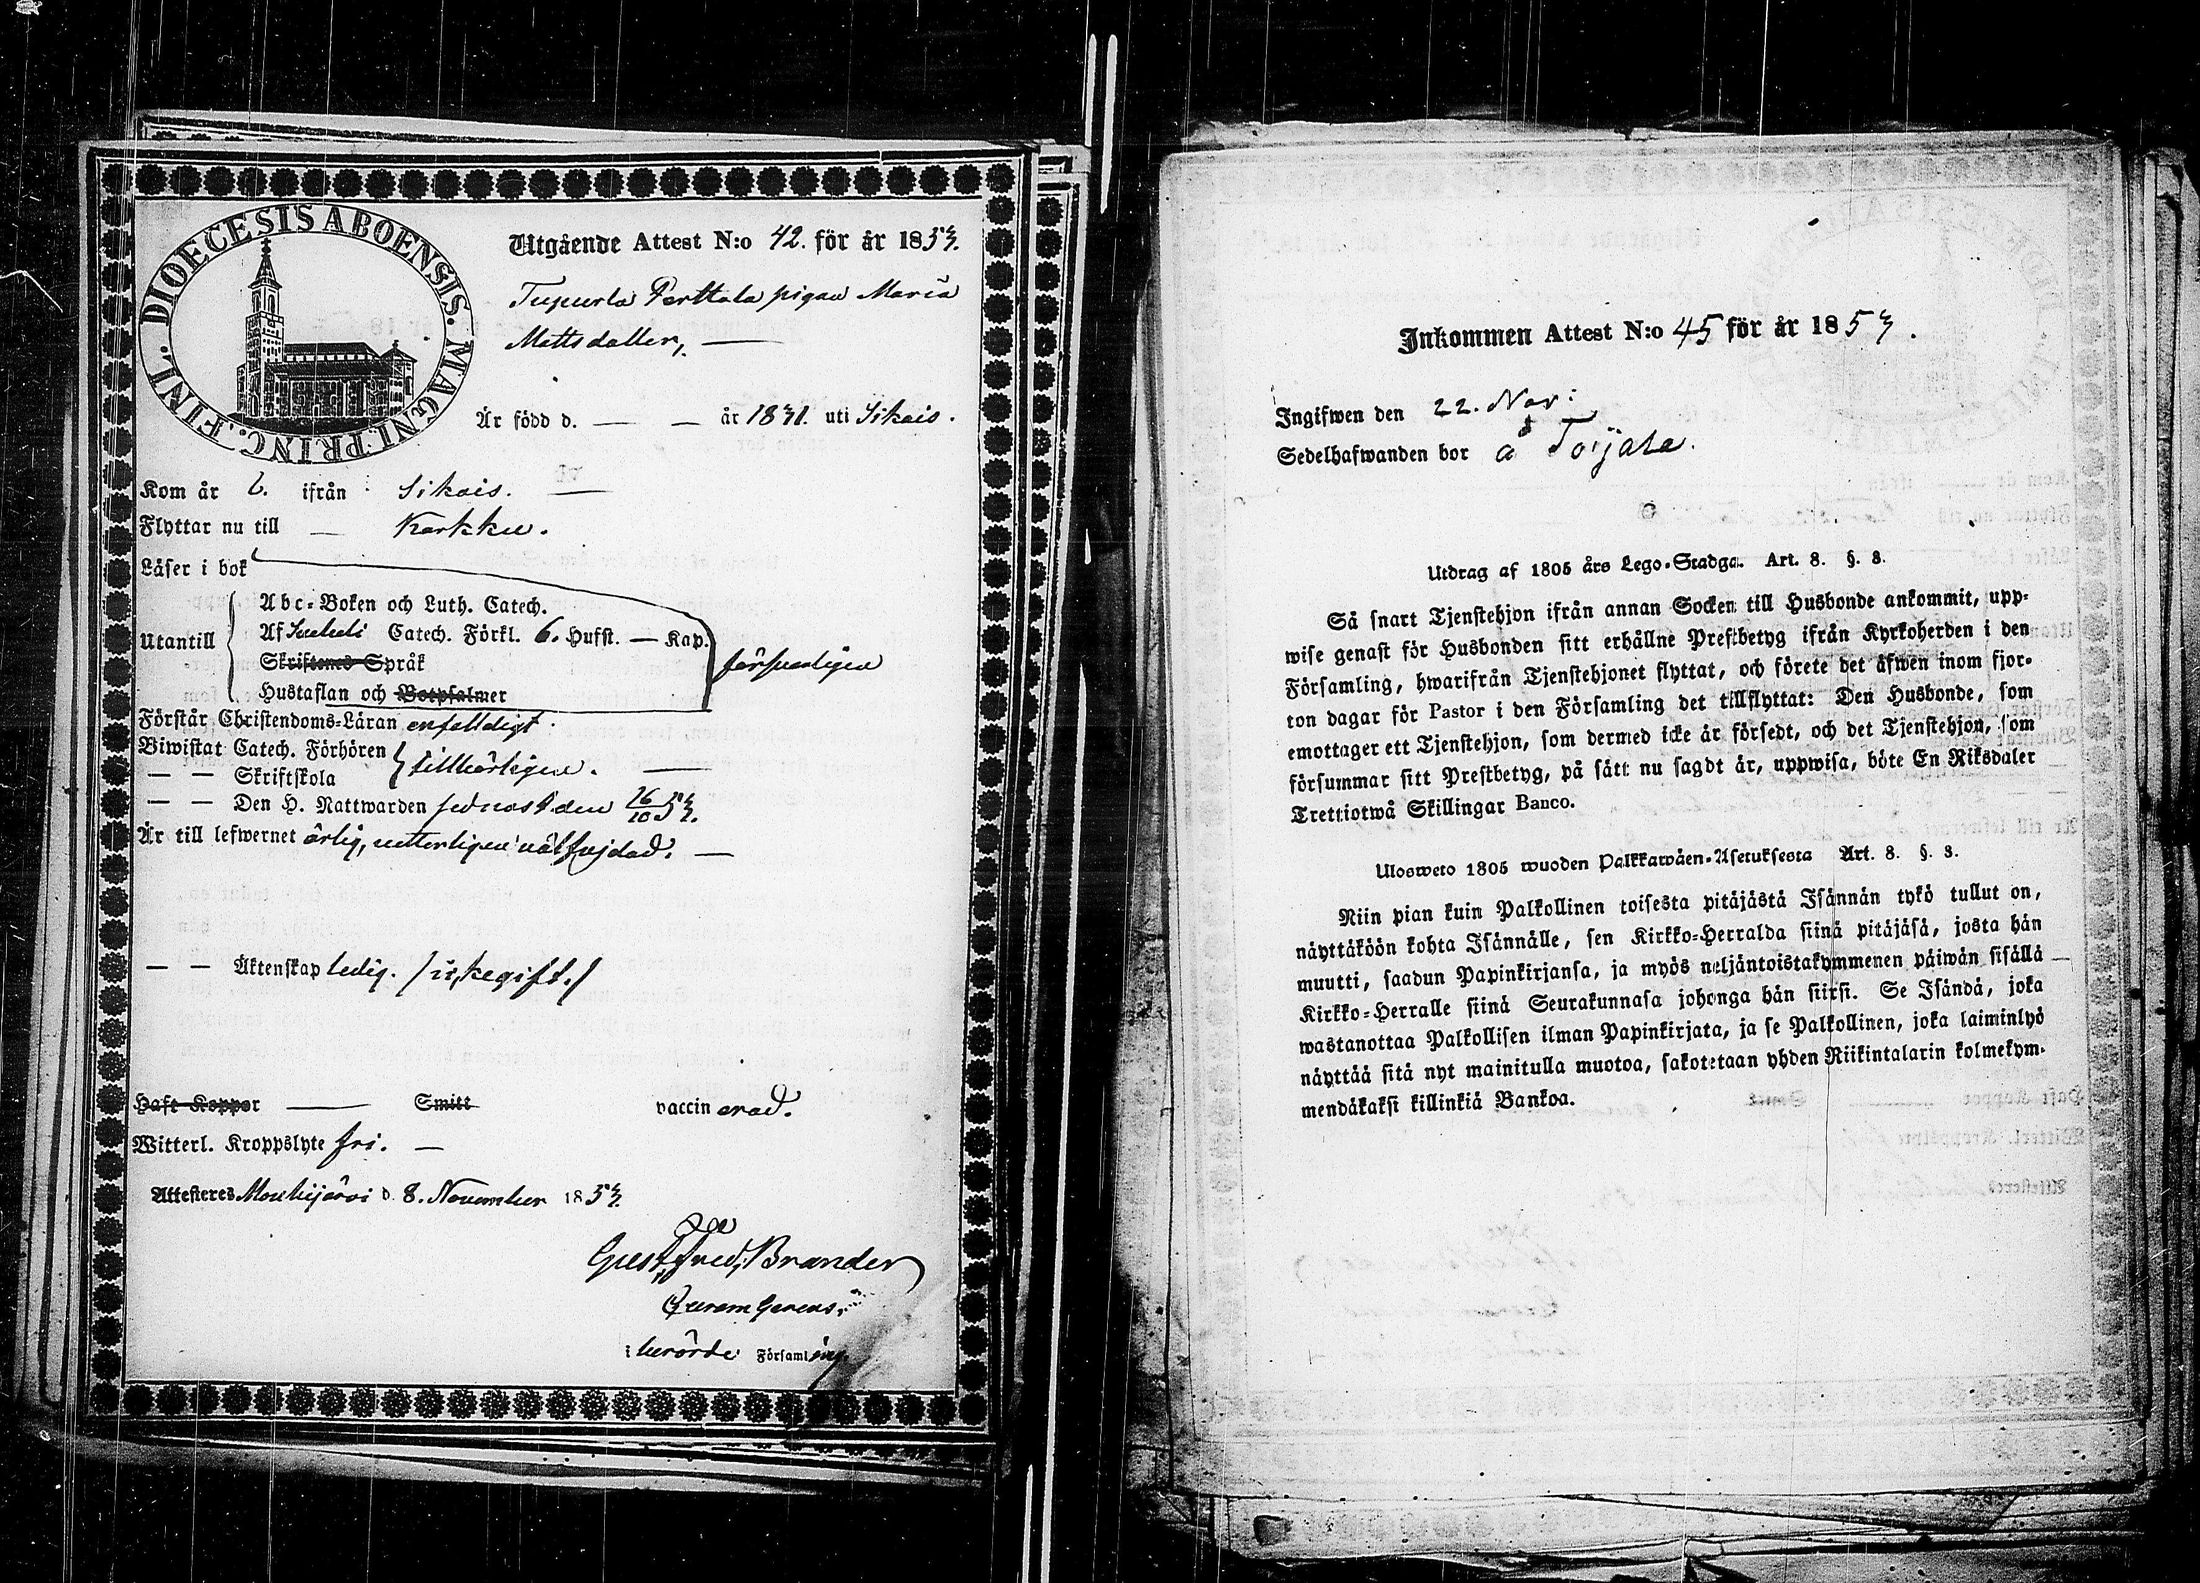 DIOECESIS ABOENSIS. MAGNI PRINC. FINL.
Utgående Attest N:o 42. för år 1853.
Tupurla Perttala pigan Maria
Mattsdotter,
År född d. — — år 1831. uti Sikais.
Kom år l. ifrån Sikais. —
Flyttar nu till — Karkku.
Läser i bok
Utantill
Abc-Boken och Luth. Catech.
Af Svebeli Catech. Förkl. 6. Hufst. — Kap.
Skriftenes Språk
Hustaflan och Botpsalmer
försvarligen
Förstår Christendoms-Läran enfaldigt.
Biwistat Catech. Förhören
— — Skriftskola
tillbörligen. —
— — Den H. Nattwarden sednast den 16/10 53.
Är till lefwernet ärlig, veterligen väl frejdad. —
— — Äktenskap ledig. /: icke gift. /
Haft Koppor — Smitt vaccinerad.
Witterl. Kroppslyte fri. —
Attesteres Mouhijärvi d. 8. November 1853.
Gust. Fred. Brander
Curam Gerens.
i berörde Församling.
Inkommen Attest N:o 45 för år 1853.
Ingifwen den 22. Nov:
Sedelhafwanden bor å Toijala.
Utdrag af 1805 års Lego-Stadga. Art. 8. §. 8.
Så snart Tjenstehjon ifrån annan Socken till Husbonde ankommit, upp-
wise genast för Husbonden sitt erhållne Prestbetyg ifrån Kyrkoherden i den
Församling, hwarifrån Tjenstehjonet flyttat, och förete det äfwen inom fjor-
ton dagar för Pastor i den Församling det tillflyttat: Den Husbonde, som
emottager ett Tjenstehjon, som dermed icke är försedt, och det Tjenstehjon, som
försummar sitt Prestbetyg, på sätt nu sagdt är, uppwisa, böte En Riksdaler
Trettiotwå Skillingar Banco.
Ulosweto 1805 wuoden Palkkawäen-Asetuksesta Art. 8. §. 8.
Niin pian kuin Palkollinen toisesta pitäjästä Isännän tykö tullut on,
näyttäköön kohta Isännälle, sen Kirkko-Herralda siinä pitäjäsä, josta hän
muutti, saadun Papinkirjansa, ja myös neljäntoistakymmenen päiwän sisällä
Kirkko-Herralle siinä Seurakunnasa johonga hän siirsi. Se Isändä, joka
wastanottaa Palkollisen ilman Papinkirjata, ja se Palkollinen, joka laiminlyö
näyttää sitä nyt mainitulla muotoa, sakotetaan yhden Riikintalarin kolmekym-
mendäkaksi killinkiä Bankoa.